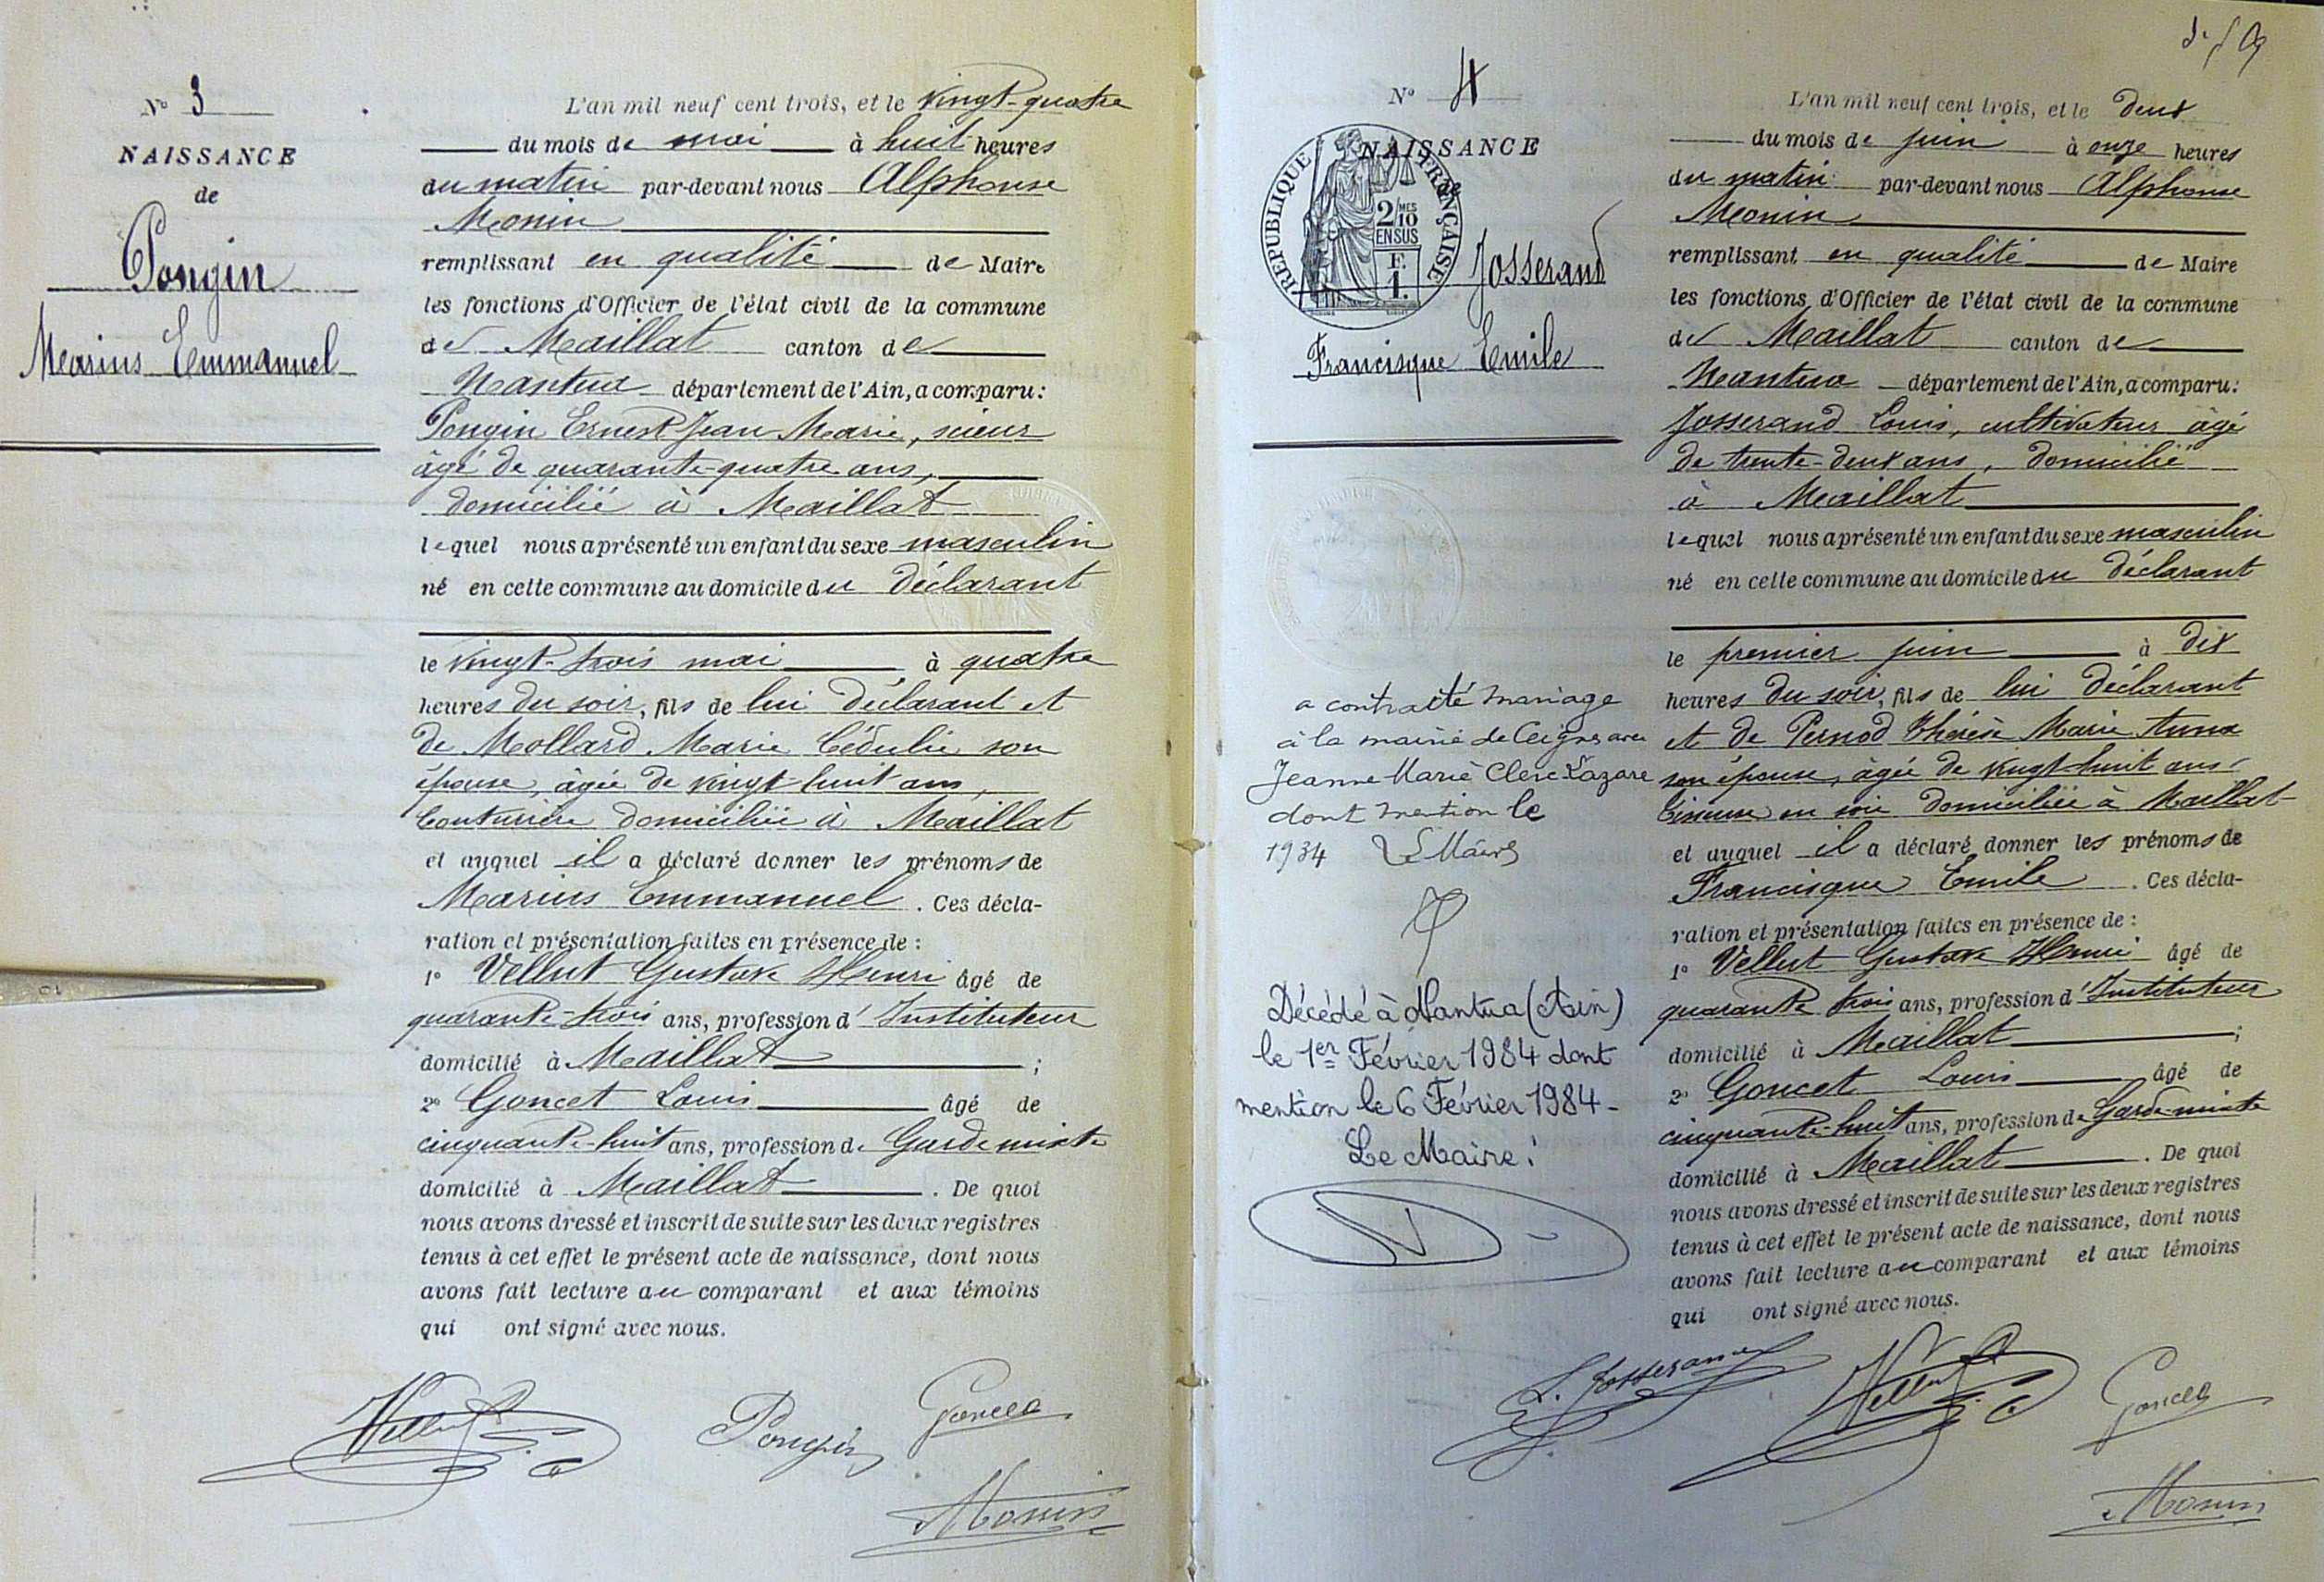 N° 3
NAISSANCE
de
Pongin
Marius Emmanuel
L'an mil neuf cent trois, et le vingt-quatre
du mois de mai à huit heures
du matin par-devant nous Alphonse
Monin
remplissant en qualité de Maire
les fonctions d'Officier de l'état civil de la commune
de Maillat canton de
Nantua département de l'Ain, a comparu:
Pongin Ernest Jean Marie, scieur
âgé de quarante-quatre ans,
domicilié à Maillat
lequel nous a présenté un enfant du sexe masculin
né en cette commune au domicile du déclarant
le vingt-trois mai à quatre
heures du soir, fils de lui déclarant et
de Mollard Marie Cédulie son
épouse, âgée de vingt-huit ans,
couturière domiciliée à Maillat
et auquel il a déclaré donner les prénoms de
Marius Emmanuel. Ces décla-
ration et présentation faites en présence de :
1° Vellut Gustave Henri âgé de
quarante-trois ans, profession d'Instituteur
domicilié à Maillat ;
2° Goncet Louis âgé de
cinquante-huit ans, profession de Garde mixte
domicilié à Maillat. De quoi
nous avons dressé et inscrit de suite sur les deux registres
tenus à cet effet le présent acte de naissance, dont nous
avons fait lecture au comparant et aux témoins
qui ont signé avec nous.
Vellut Pongin Goncet
Monin
N° 4
NAISSANCE
de
RÉPUBLIQUE FRANÇAISE
2/10 MES
EN SUS
F.
1.
Josserand
Francisque Emile
a contracté mariage
à la mairie de Ceignes avec
Jeanne Marie Clerc Lazare
dont mention le
1934 Le Maire
Décédé à Nantua (Ain)
le 1er Février 1984 dont
mention le 6 Février 1984-
Le Maire:
L'an mil neuf cent trois, et le deux
du mois de juin à onze heures
du matin par-devant nous Alphonse
Monin
remplissant en qualité de Maire
les fonctions d'Officier de l'état civil de la commune
de Maillat canton de
Nantua département de l'Ain, a comparu:
Josserand Louis, cultivateur âgé
de trente-deux ans, domicilié
à Maillat
lequel nous a présenté un enfant du sexe masculin
né en cette commune au domicile du déclarant
le premier juin à dix
heures du soir, fils de lui déclarant
et de Pernod Thérèse Marie Anna
son épouse, âgée de vingt-huit ans,
tisseuse en soie domiciliée à Maillat
et auquel il a déclaré donner les prénoms de
Francisque Emile. Ces décla-
ration et présentation faites en présence de :
1° Vellut Gustave Henri âgé de
quarante trois ans, profession d'Instituteur
domicilié à Maillat ;
2° Goncet Louis âgé de
cinquante-huit ans, profession de Garde-mixte
domicilié à Maillat. De quoi
nous avons dressé et inscrit de suite sur les deux registres
tenus à cet effet le présent acte de naissance, dont nous
avons fait lecture au comparant et aux témoins
qui ont signé avec nous.
L. Josserand Vellut Goncet
Monin